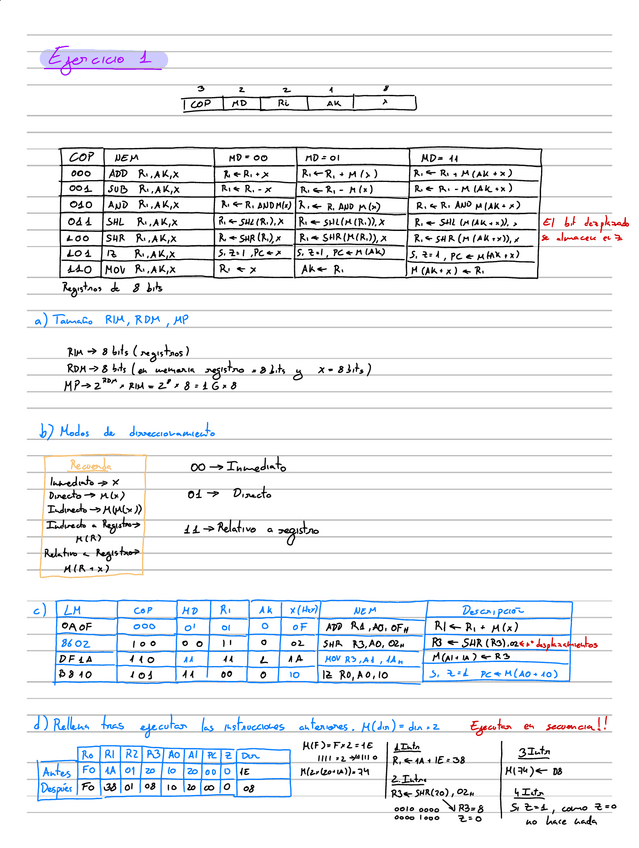 Ejercicio 1
3 2 2 1 8
COP MD Ri AK X
COP NEM MD=00 MD=01 MD=11
000 ADD Ri,AK,X Ri←Ri+X Ri←Ri+M(X) Ri←Ri+M(AK+X)
001 SUB Ri,AK,X Ri←Ri-X Ri←Ri-M(X) Ri←Ri-M(AK+X)
010 AND Ri,AK,X Ri←Ri AND M(X) Ri←Ri AND M(X) Ri←Ri AND M(AK+X)
011 SHL Ri,AK,X Ri←SHL(Ri),X Ri←SHL(M(Ri)),X Ri←SHL(M(AK+X)),X El bit desplazado
100 SHR Ri,AK,X Ri←SHR(Ri),X Ri←SHR(M(Ri)),X Ri←SHR(M(AK+X)),X se almacena en Z
101 IZ Ri,AK,X Si Z=1,PC←X Si Z=1,PC←M(AK) Si Z=1, PC←M(AK+X)
110 MOV Ri,AK,X Ri←X AK←Ri M(AK+X)←Ri
Registros de 8 bits
a) Tamaño RIM, RDM, MP
RIM→8 bits (registros)
RDM→8 bits (en memoria registro = 8 bits y X=8 bits)
MP→2^RDM × RIM = 2^8 × 8 = 1G×8
b) Modos de direccionamiento
Recuerda
Inmediato→X
Directo→M(X)
Indirecto→M(M(X))
Indirecto a Registro→
M(R)
Relativo a Registro→
M(R+X)
00→Inmediato
01→ Directo
11→Relativo a registro
c) LM COP MD Ri AK X(Hex) NEM Descripción
0A0F 000 01 01 0 0F ADD R1,A0,0FH R1←R1+M(X)
8602 100 00 11 0 02 SHR R3,A0,02H R3←SHR(R3),02←nº desplazamientos
DF1A 110 11 11 1 1A MOV R3,A1,1AH M(A1+1A)←R3
B810 101 11 00 0 10 IZ R0,A0,10 Si Z=1 PC←M(A0+10)
d) Rellena tras ejecutar las instrucciones anteriores. M(dir)=dir×2 Ejecutar en secuencia!!
R0 R1 R2 R3 A0 A1 PC Z Dir
Antes F0 1A 01 20 10 20 00 0 1E
Después F0 38 01 08 10 20 00 0 08
M(F)=F×2=1E
1111×2→11110
M(2×(20+1A))=74
1 Intr
R1←1A+1E=38
2. Intr
R3←SHR(20),02H
0010 0000 R3=8
0000 1000 Z=0
3 Intr
M(74)←08
4 Intr
Si Z=1, como Z=0
no hace nada